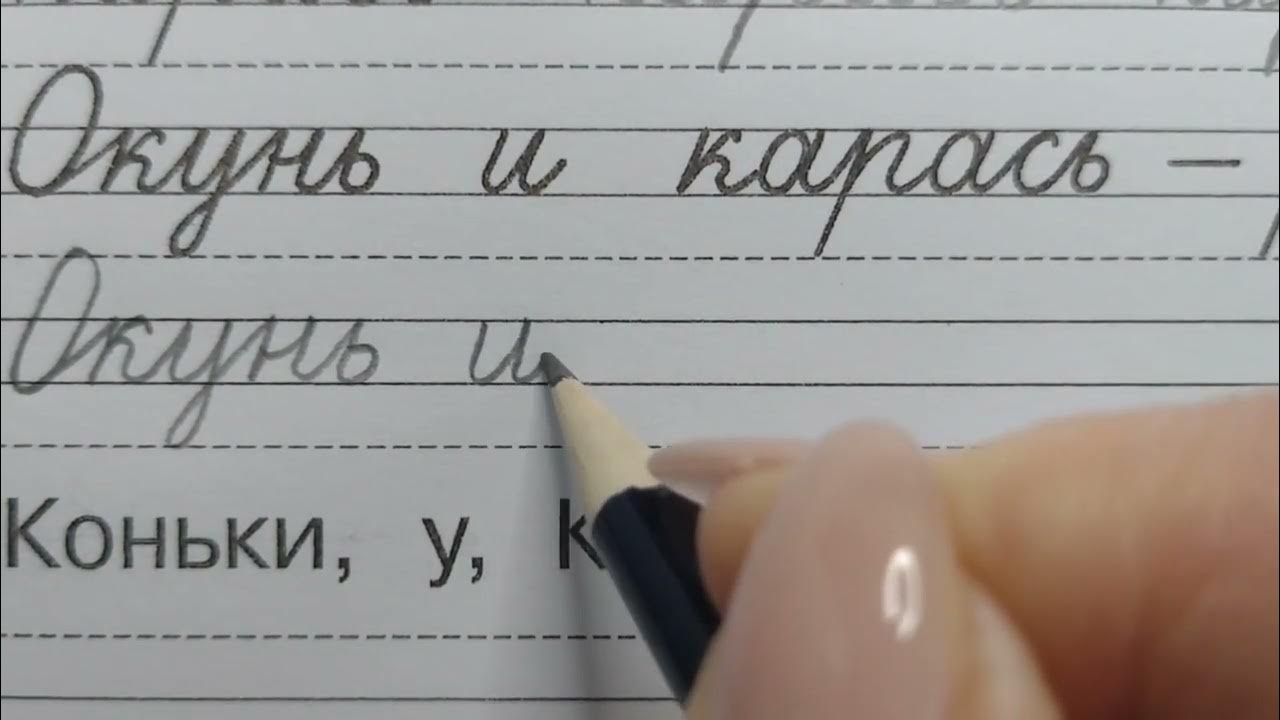 Окунь и карась –
Окунь и
Коньки, у,